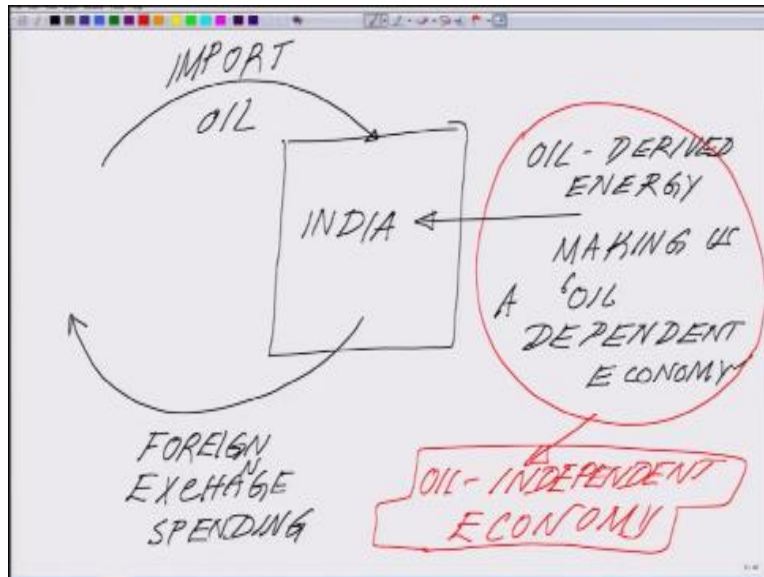 IMPORT
OIL
INDIA
OIL - DERIVED
ENERGY
MAKING US
A 'OIL
DEPENDENT
ECONOMY'
FOREIGN
EXCHANGE
SPENDING
OIL - INDEPENDENT
ECONOMY